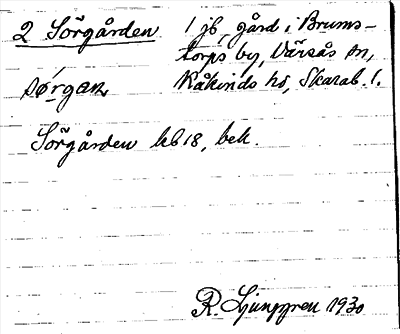 2 Sörgården 1 jb, gård i Brums-
torps by, Värsås sn,
sö̀rgan Kåkinds hd, Skarab. l.
Sörgården kb 18, bek.
R. Ljunggren 1930